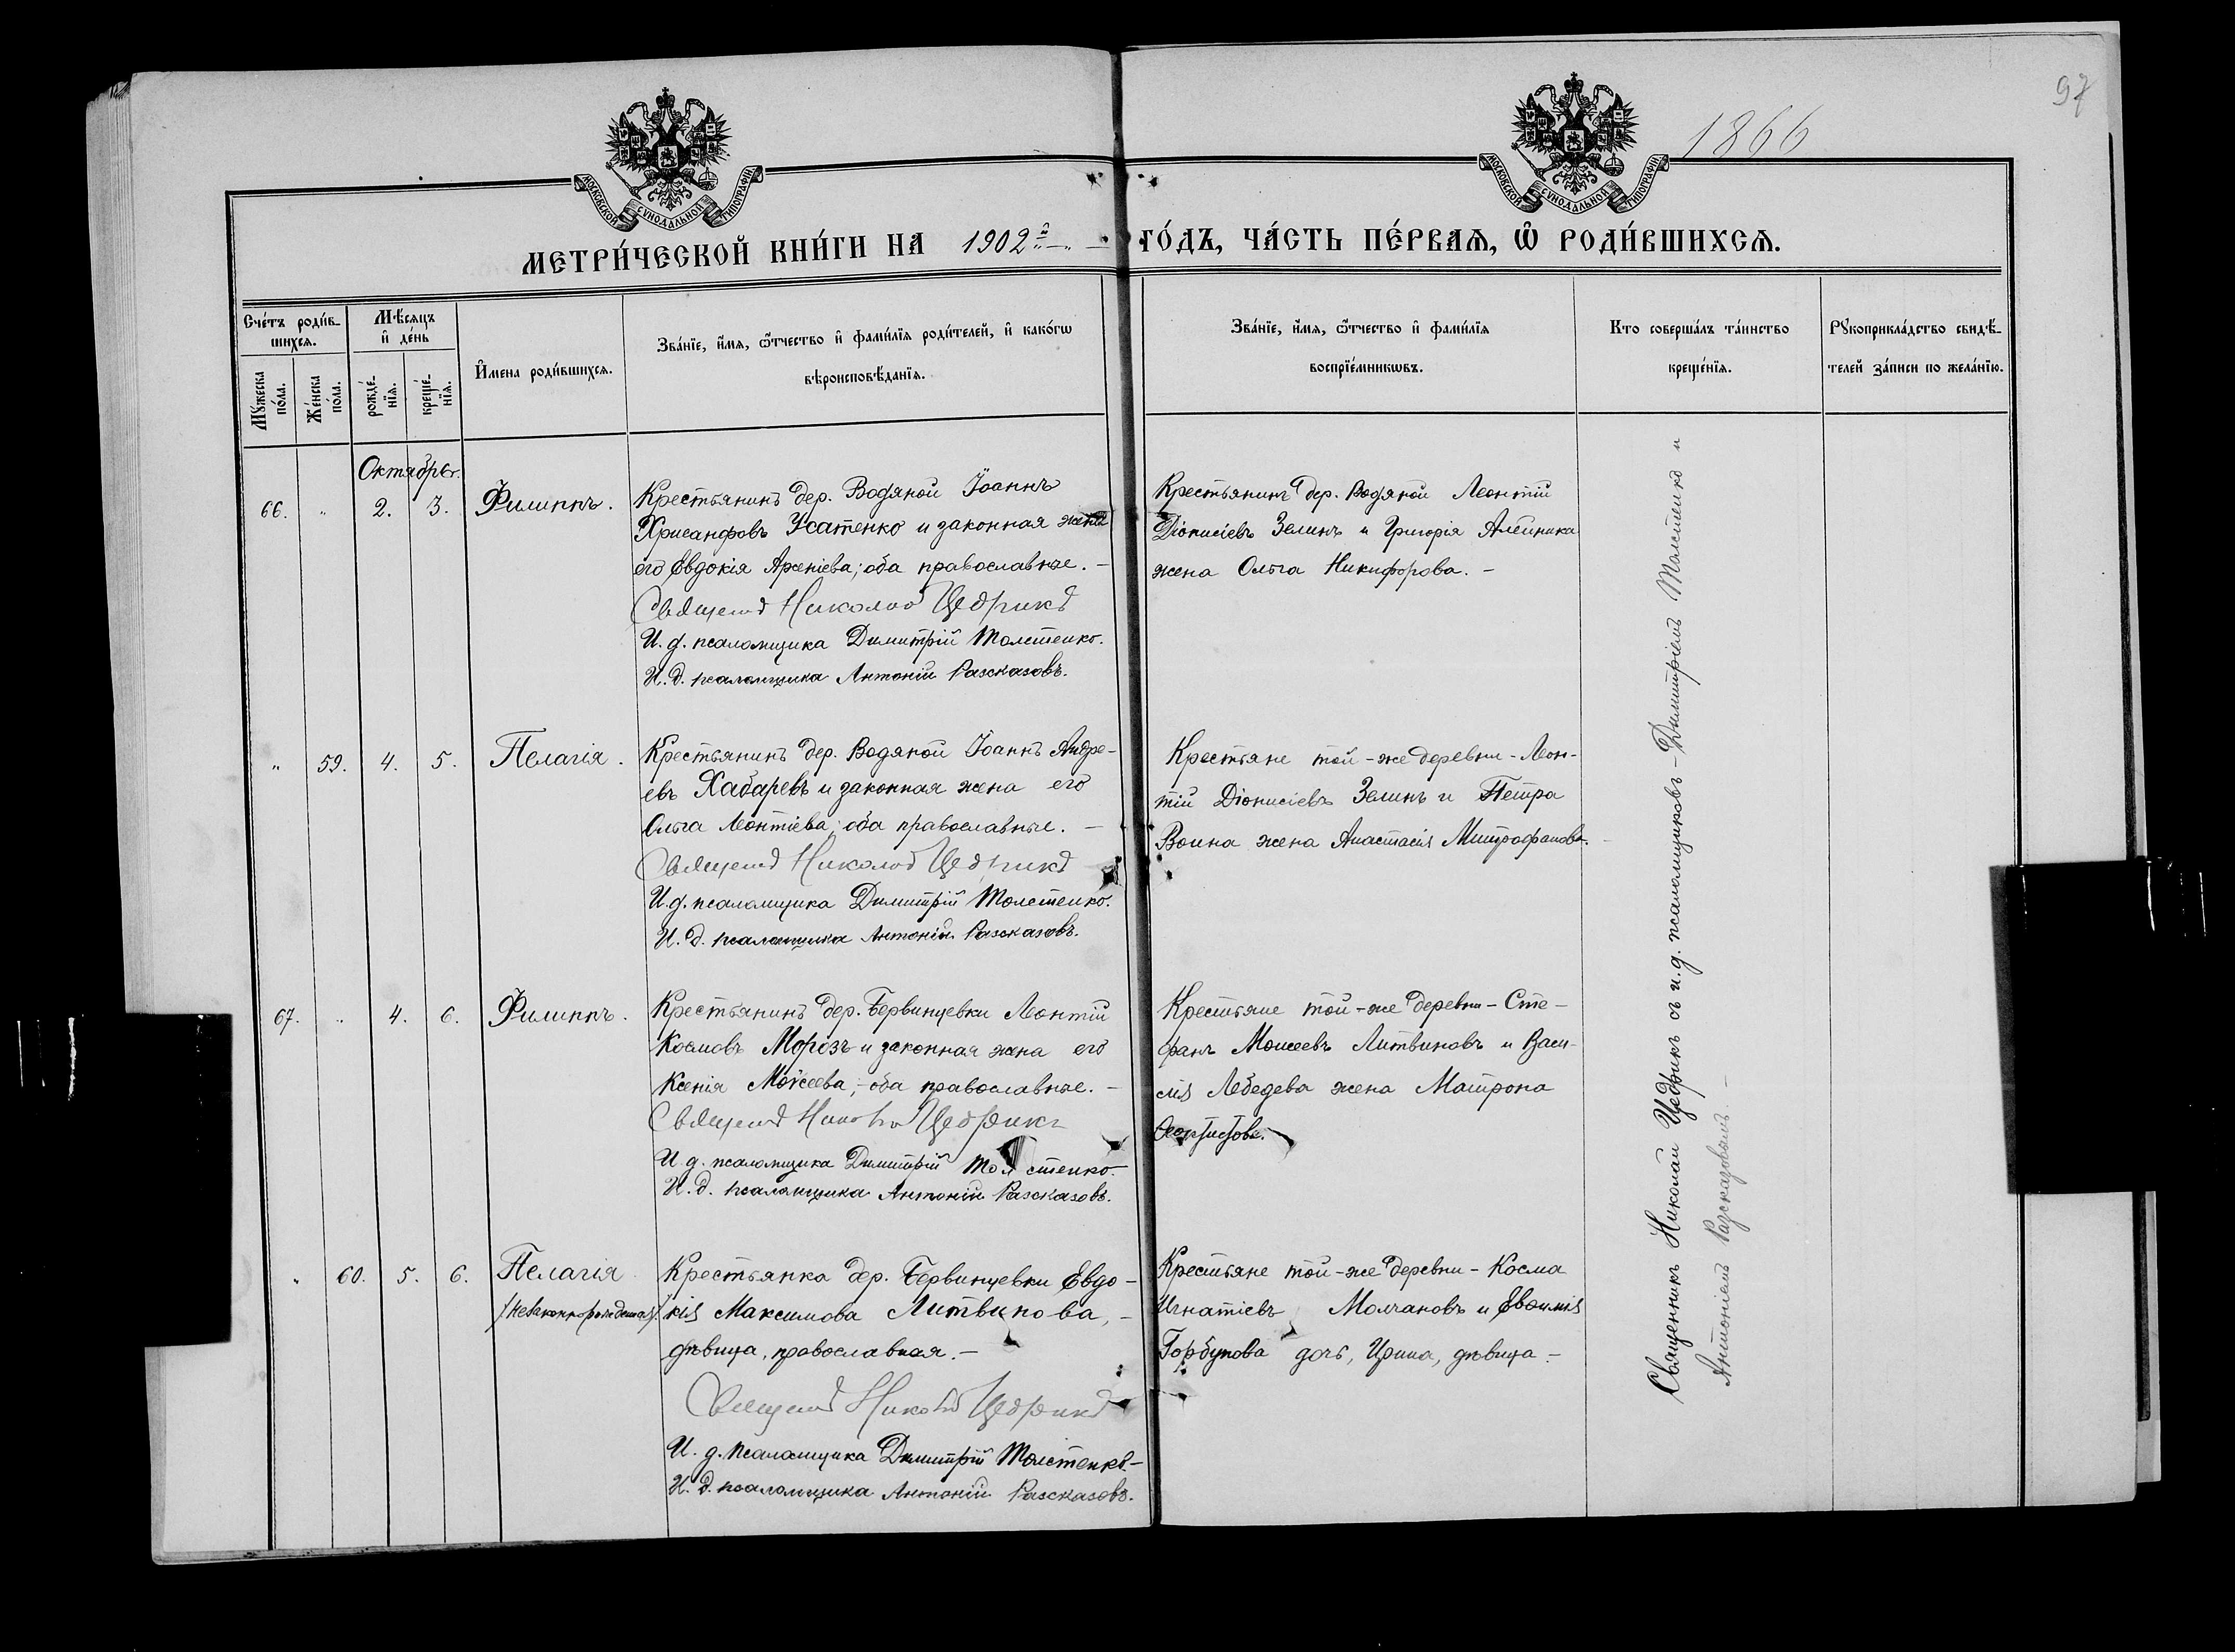 97
1866
МОСКОВСКОЙ СѴНОДАЛЬНОЙ ТИПОГРАФІИ
МОСКОВСКОЙ СѴНОДАЛЬНОЙ ТИПОГРАФІИ
МЕТРИ́ЧЕСКОЙ КНИ́ГИ НА 1902й
ГО́ДЪ, ЧА́СТЬ ПЕ́РВАѦ, Ѿ РОДИ́ВШИХСѦ.
Сче́тъ роди́в-
шихсѧ.
Мѣ́сѧцъ
и҆ де́нь
Мꙋ́жеска
по́ла.
Же́нска
по́ла.
рожде́-
нїѧ.
креще́-
нїѧ.
И҆мена роди́вшихсѧ.
Зва́нїе, и҆́мѧ, ѻ҆́тчество и҆ фами́лїѧ роди́телей, и҆ како́гѡ
вѣроисповѣ́данїѧ.
Зва́нїе, и҆́мѧ, ѻ҆́тчество и҆ фами́лїѧ
воспрїе́мникѡвъ.
Кто соверша́лъ та́инство
креще́нїѧ.
Рꙋкоприкла́дство свидѣ́-
телей за́писи по жела́нїю.
Октябрь.
66. " 2. 3. Филиппъ.
Крестьянинъ дер. Водяной Іоаннъ
Хрисанфовъ Усатенко и законная жена
его Евдокія Арсеніева; оба православные. –
Священ Николай Цедрикъ
И. д. псаломщика Димитрій Толстенко.
И. д. псаломщика Антоній Разсказовъ.
Крестьянинъ дер. Водяной Леонтій
Діонисіевъ Зелинъ и Григорія Алейника
жена Ольга Никифорова. –
" 59. 4. 5. Пелагія.
Крестьянинъ дер. Водяной Іоаннъ Андре-
евъ Хабаревъ и законная жена его
Ольга Леонтіева; оба православные. –
Священ Николай Цедрикъ
И. д. псаломщика Димитрій Толстенко.
И. д. псаломщика Антоній Разсказовъ.
Крестьяне той-же деревни – Леон-
тій Діонисіевъ Зелинъ и Петра
Воина жена Анастасія Митрофанова.
67. " 4. 6. Филиппъ.
Крестьянинъ дер. Бервинцевки Леонтій
Космовъ Морозъ и законная жена его
Ксенія Моисеева; – оба православные. –
Священ Николай Цедрикъ
И. д. псаломщика Димитрій Толстенко.
И. д. псаломщика Антоній Разсказовъ.
Крестьяне той-же деревни – Сте-
фанъ Моисеевъ Литвиновъ и Васи-
лія Лебедева жена Матрона
Ѳеоктистова.
" 60. 5. 6. Пелагія
/незаконнорожденная/.
Крестьянка дер. Бервинцевки Евдо-
кія Максимова Литвинова, –
дѣвица, православная. –
Священ Николай Цедрикъ
И. д. псаломщика Димитрій Толстенко. –
И. д. псаломщика Антоній Разсказовъ.
Крестьяне той-же деревни – Косма
Игнатіевъ Молчановъ и Евѳимія
Горбунова дочь, Ирина, дѣвица. –
Священникъ Николай Цедрикъ съ и. д. псаломщиковъ – Димитріемъ Толстенко и
Антоніемъ Разсказовымъ. –